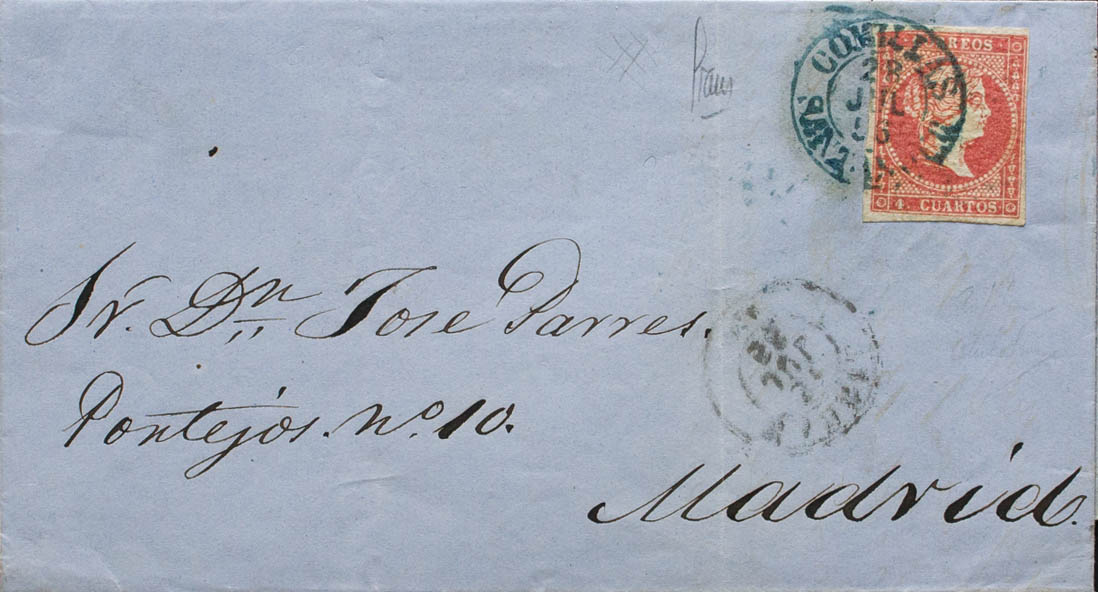 COMILLAS
CORREOS
JUL
4. CUARTOS.
Sr. Dn. Jose Parres.
Pontejos. nº 10.
Madrid.